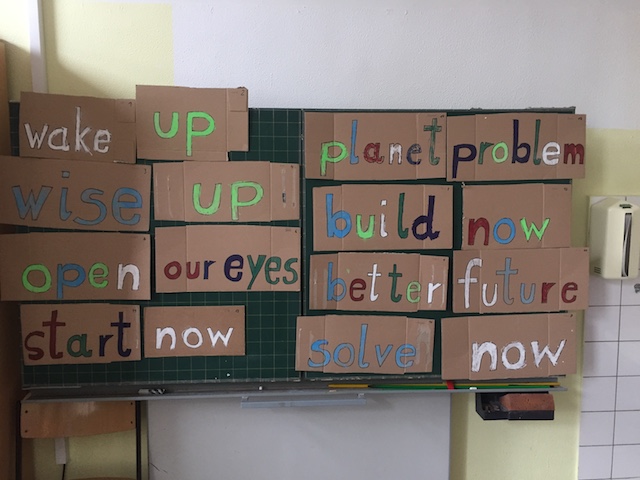 wake up
wise up
open our eyes
start now
planet problem
build now
better future
solve now